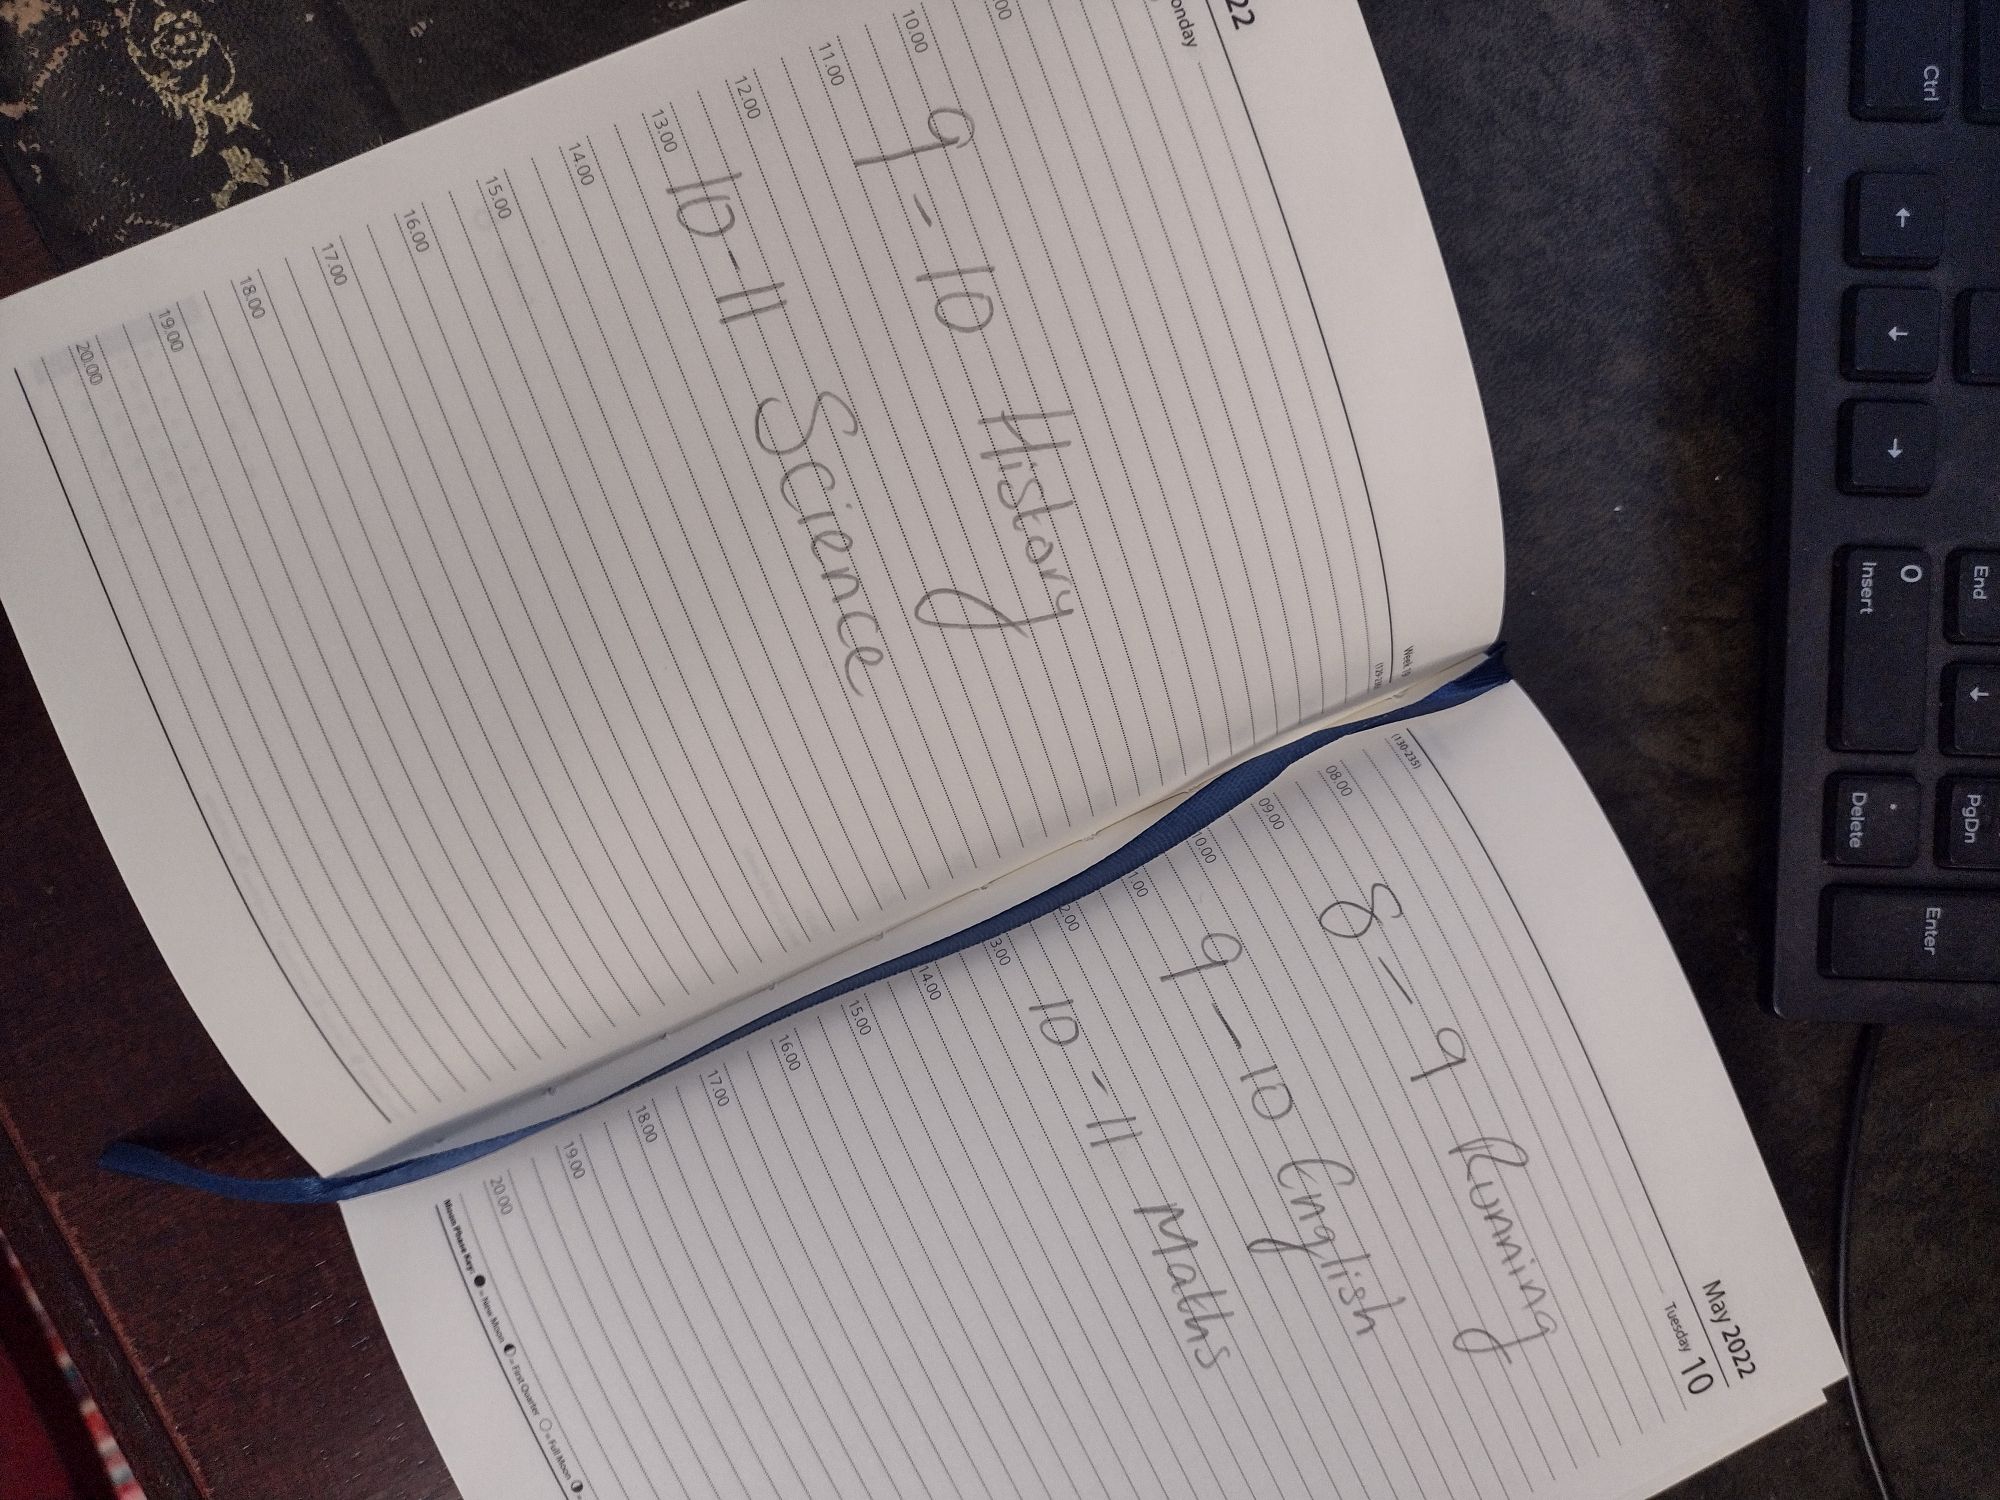 22
onday
Week 19
(129-236)
00
10.00
11.00
12.00
13.00
14.00
15.00
16.00
17.00
18.00
19.00
20.00
9 - 10 History
10 - 11 Science
May 2022
Tuesday 10
(130-235)
08.00
09.00
10.00
1.00
2.00
3.00
14.00
15.00
16.00
17.00
18.00
19.00
20.00
8 - 9 Running
9 - 10 English
10 - 11 Maths
Moon Phase Key: ● = New Moon ◐ = First Quarter ○ = Full Moon ◑ =
Ctrl
←
↓
→
0
Insert
End
↓
.
Delete
PgDn
Enter